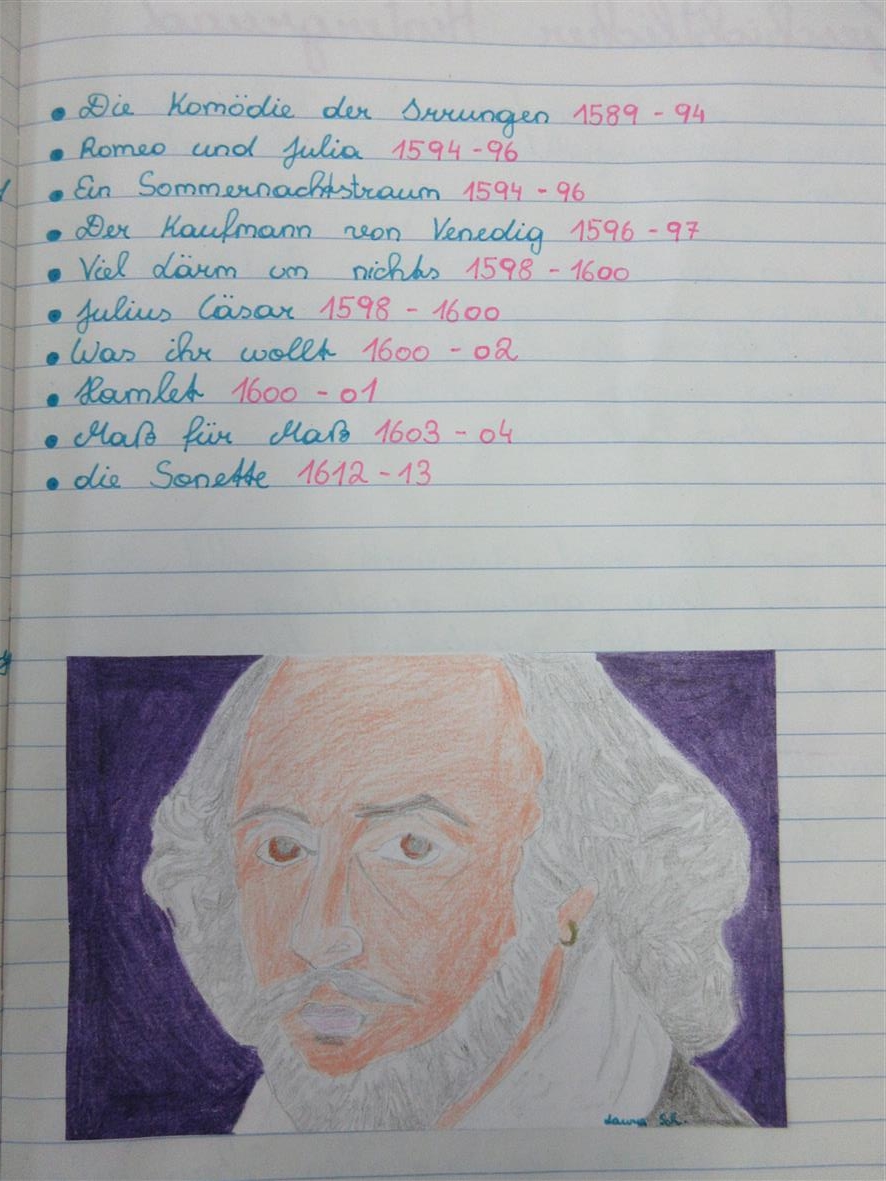 • Die Komödie der Irrungen 1589 - 94
• Romeo und Julia 1594 - 96
• Ein Sommernachtstraum 1594 - 96
• Der Kaufmann von Venedig 1596 - 97
• Viel därm um nichts 1598 - 1600
• Julius Cäsar 1598 - 1600
• Was ihr wollt 1600 - 02
• Hamlet 1600 - 01
• Maß für Maß 1603 - 04
• die Sonette 1612 - 13
Laura Sch.